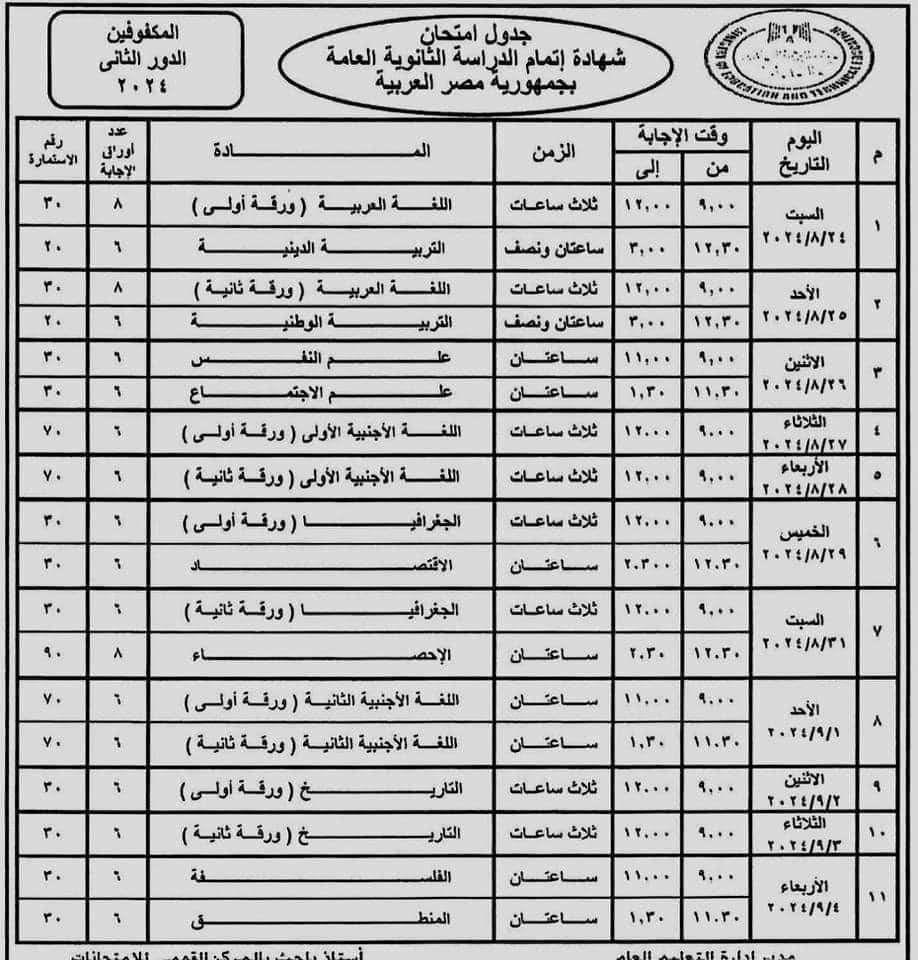 جدول امتحان
شهادة إتمام الدراسة الثانوية العامة
بجمهورية مصر العربية
المكفوفين
الدور الثانى
٢٠٢٤
EDUCATION AND TECHNICAL
م | اليوم التاريخ | وقت الإجابة من | إلى | الزمن | المـادة | عدد أوراق الإجابة | رقم الاستمارة
١ | السبت ٢٠٢٤/٨/٢٤ | ٩,٠٠ | ١٢,٠٠ | ثلاث ساعات | اللغة العربية ( ورقة أولى ) | ٨ | ٣٠
١٢,٣٠ | ٣,٠٠ | ساعتان ونصف | التربية الدينية | ٦ | ٢٠
٢ | الأحد ٢٠٢٤/٨/٢٥ | ٩,٠٠ | ١٢,٠٠ | ثلاث ساعات | اللغة العربية ( ورقة ثانية ) | ٨ | ٣٠
١٢,٣٠ | ٣,٠٠ | ساعتان ونصف | التربية الوطنية | ٦ | ٢٠
٣ | الاثنين ٢٠٢٤/٨/٢٦ | ٩,٠٠ | ١١,٠٠ | ساعتان | علم النفس | ٦ | ٣٠
١١,٣٠ | ١,٣٠ | ساعتان | علم الاجتماع | ٦ | ٣٠
٤ | الثلاثاء ٢٠٢٤/٨/٢٧ | ٩,٠٠ | ١٢,٠٠ | ثلاث ساعات | اللغة الأجنبية الأولى ( ورقة أولى ) | ٦ | ٧٠
٥ | الأربعاء ٢٠٢٤/٨/٢٨ | ٩,٠٠ | ١٢,٠٠ | ثلاث ساعات | اللغة الأجنبية الأولى ( ورقة ثانية ) | ٦ | ٧٠
٦ | الخميس ٢٠٢٤/٨/٢٩ | ٩,٠٠ | ١٢,٠٠ | ثلاث ساعات | الجغرافيا ( ورقة أولى ) | ٦ | ٣٠
١٢,٣٠ | ٢,٣٠٠ | ساعتان | الاقتصاد | ٦ | ٣٠
٧ | السبت ٢٠٢٤/٨/٣١ | ٩,٠٠ | ١٢,٠٠ | ثلاث ساعات | الجغرافيا ( ورقة ثانية ) | ٦ | ٣٠
١٢,٣٠ | ٢,٣٠ | ساعتان | الإحصاء | ٨ | ٩٠
٨ | الأحد ٢٠٢٤/٩/١ | ٩,٠٠ | ١١,٠٠ | ساعتان | اللغة الأجنبية الثانية ( ورقة أولى ) | ٦ | ٧٠
١١,٣٠ | ١,٣٠ | ساعتان | اللغة الأجنبية الثانية ( ورقة ثانية ) | ٦ | ٧٠
٩ | الاثنين ٢٠٢٤/٩/٢ | ٩,٠٠ | ١٢,٠٠ | ثلاث ساعات | التاريخ ( ورقة أولى ) | ٦ | ٣٠
١٠ | الثلاثاء ٢٠٢٤/٩/٣ | ٩,٠٠ | ١٢,٠٠ | ثلاث ساعات | التاريخ ( ورقة ثانية ) | ٦ | ٣٠
١١ | الأربعاء ٢٠٢٤/٩/٤ | ٩,٠٠ | ١١,٠٠ | ساعتان | الفلسفة | ٦ | ٣٠
١١,٣٠ | ١,٣٠ | ساعتان | المنطق | ٦ | ٣٠
مدير إدارة التعليم العام
أستاذ باحث بالمركز القومى للامتحانات